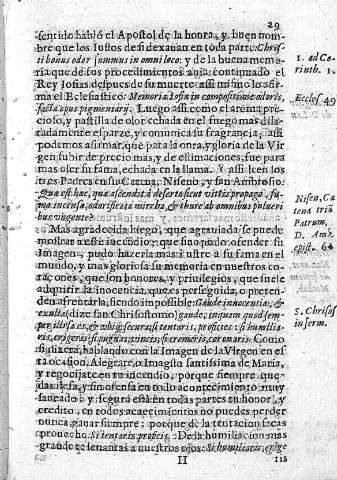 29
sentido habló el Apostol de la honra, y buen nom-
bre que los Iustos de si dexauan en toda parte: Chris-
ti bonus odor summus in omni loco: y de la buena memo-
ria que de sus procedimientos auia continuado el
Rey Iosias despues de su muerte assi mismo lo afir
ma el Eclesiastico: Memoria Iosiæ in compositione odoris,
facta opus pigmentarij. Luego assi como el aroma pre
cioso, y pastilla de olor echada en el fuego mas di-
latadamente esparze, y comunica su fragrancia; assi
podemos afirmar, que para la onra, y gloria de la Vir
gen subir de precio mas, y de estimaciones, fue para
mas oler su fama, echada en la llama. Y assi leen los
tres Padres en su Catena, Niseno, y san Ambrosio:
Quæ est hæc, quæ ascendit à deserto sicut vitis propago, fu-
mo incensa, odorificata mirrha, & thure ab omnibus pulueri
bus vngente?
Mas agradecida luego, que agrauiada se puede
mostrar a este incendio; que sino pudo ofender su
Imagen, pudo hazerla mas ilustre a su fama en el
mundo, y mas gloriosa su memoria en nuestros co
raçones, que son honores, y priuilegios, que suele
adquirir la inocencia, que es perseguida, o preten-
den afrentarla, siendo impossible: Gaude innocentia, &
exulta (dize san Chrisostomo) gaude, inquam quod sem-
per illæsa es, & vbique secura; si tentaris, proficis: si humilia-
ris, erigeris: si pugnas, vincis; si cremeris, coronaris. Como
si dixera, hablando con la Imagen de la Virgen en es
ta ocasion. Alegrate, o Imagen santissima de Maria,
y regocijate en tu incendio, porque siempre que-
das ilesa, y sin ofensa en todo acontecimiento muy
saneado: y seguro està en todas partes tu honor, y
credito, en todos acaecimientos no puedes perder
nunca, ganar siempre; porque de la tentacion sacas
prouecho: Si tentaris proficis. De la humiliacion mas
grande te leuantas a nuestros ojos: Si humiliaris, erige
H
1. ad Co
rinth. 1.
Eccles. 49
Nisen, Ca
tena triũ
Patrum,
D. Amb.
epist. 64
S. Chrisos
in serm.